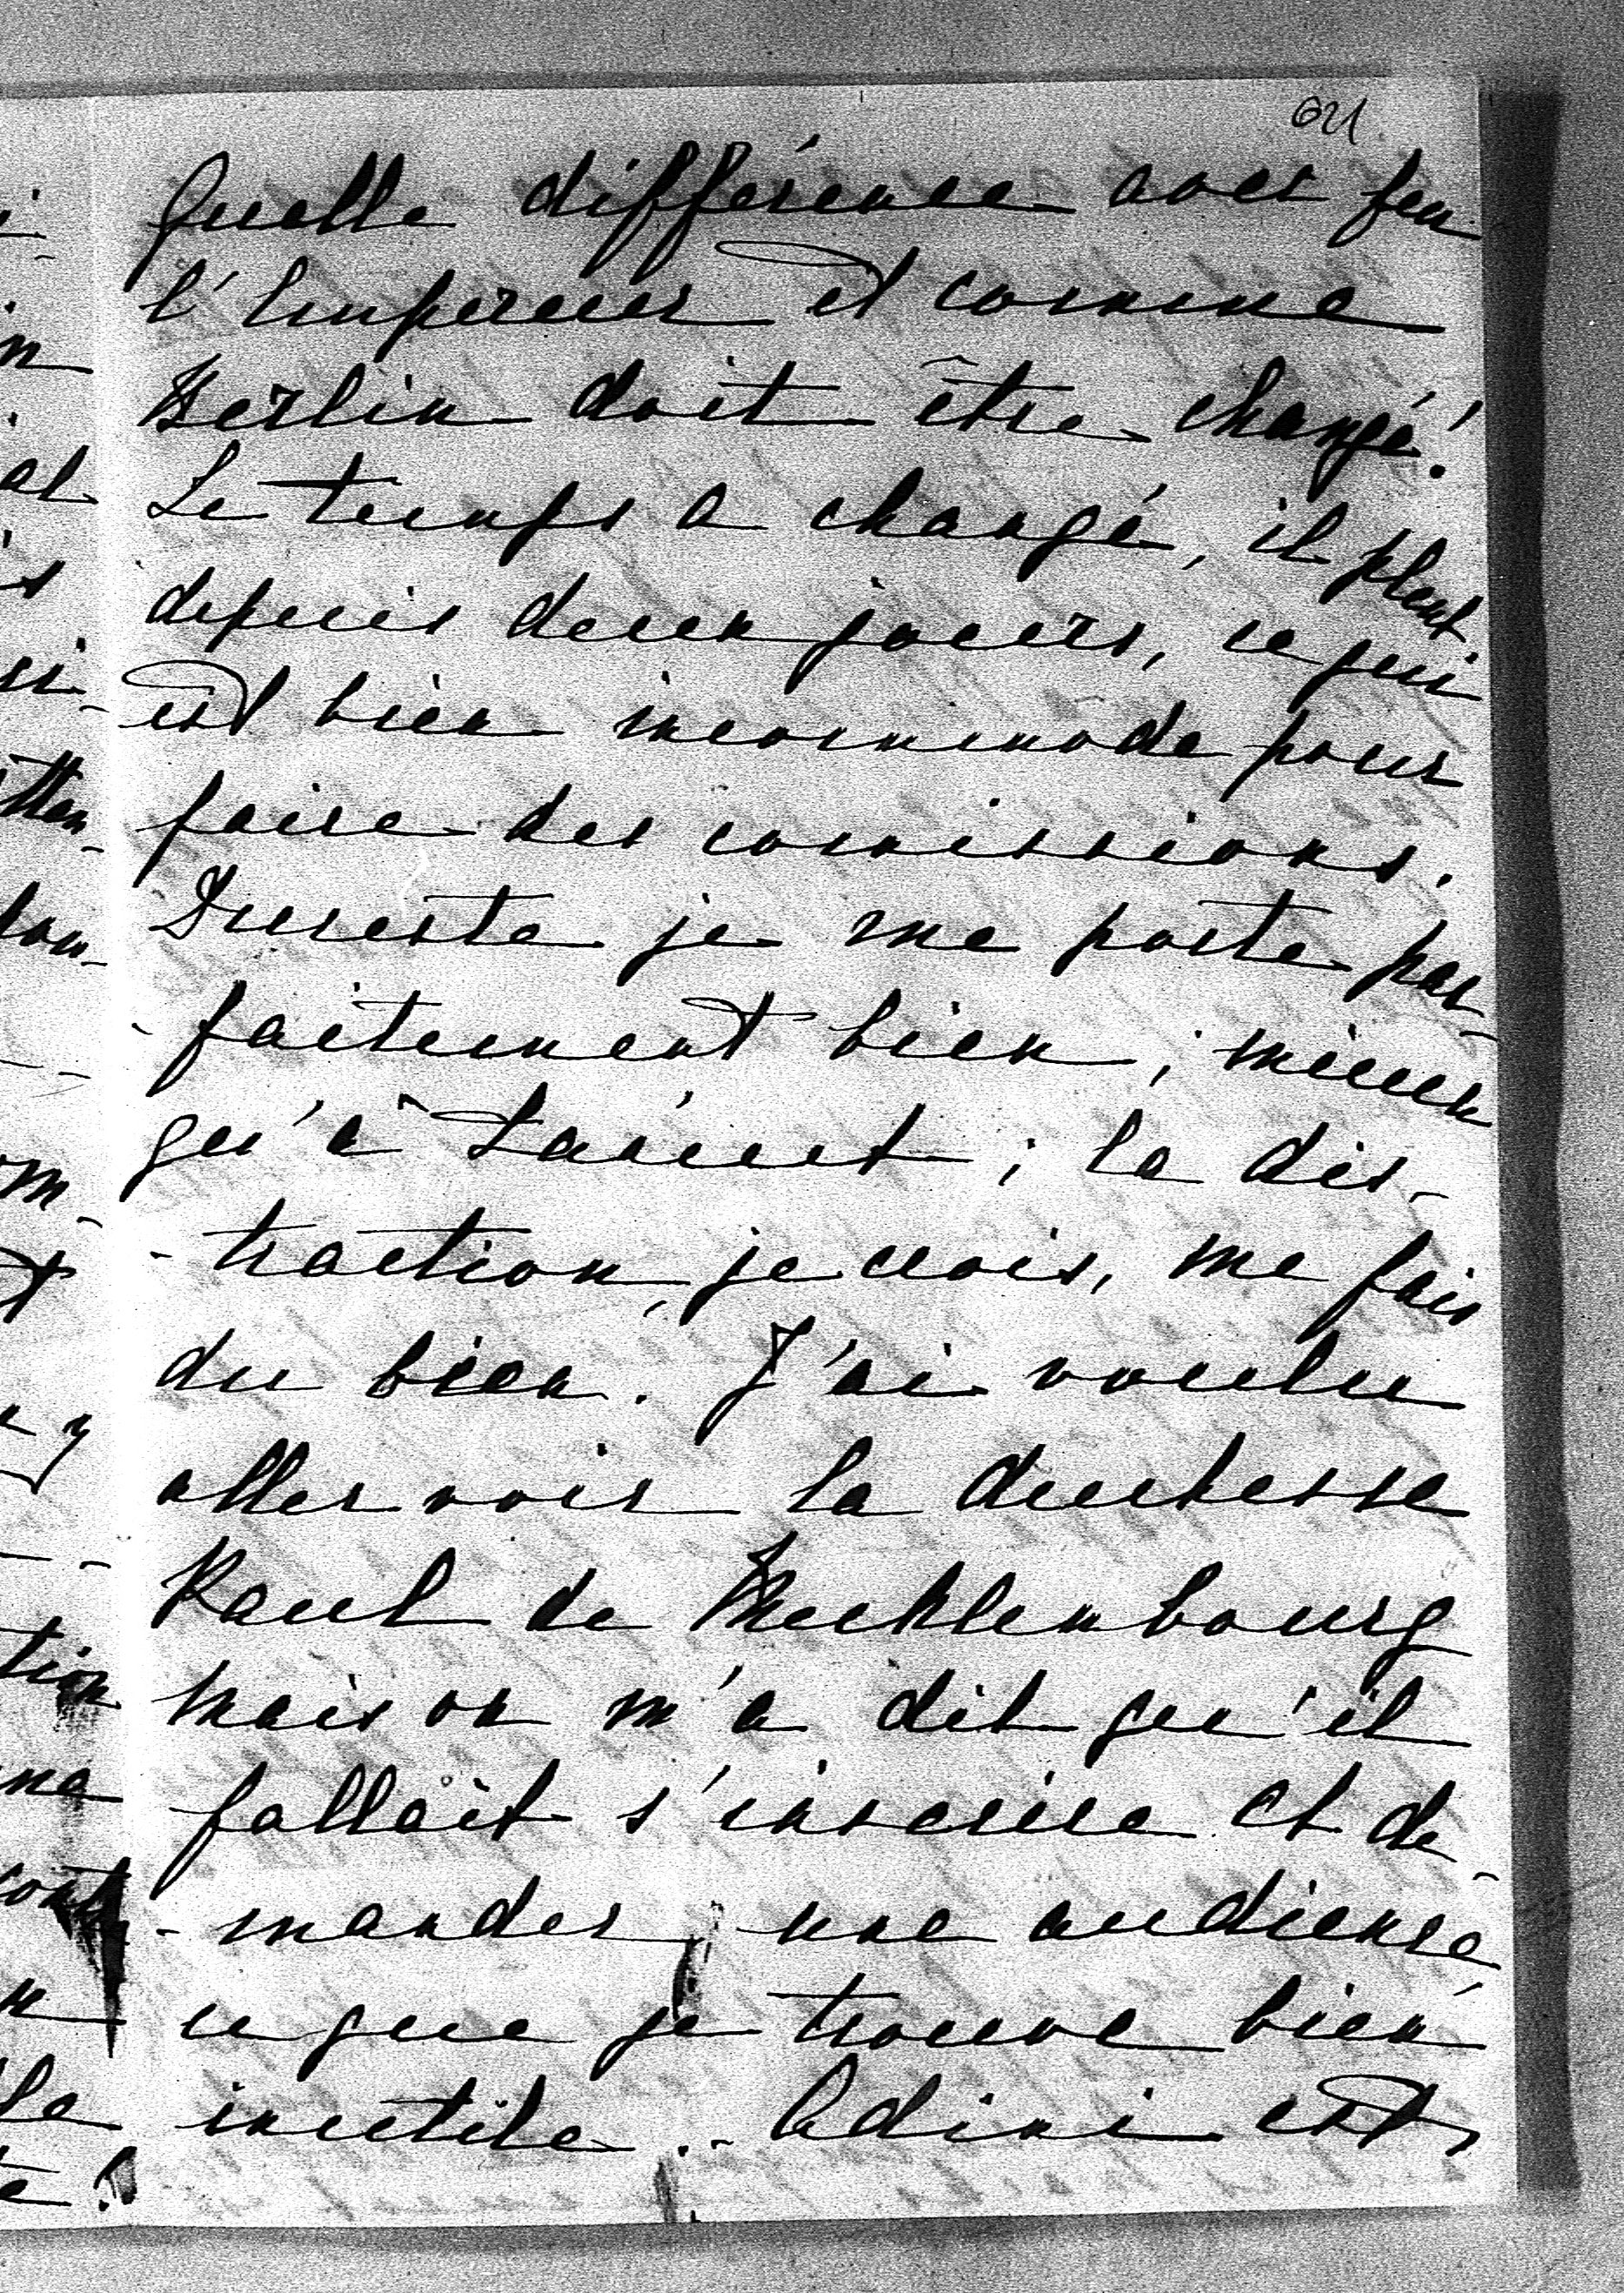 Quelle différence avec feu
l'Empereur et comme
Berlin doit être changé!
Le temps a changé, il pleut
depuis deux jours, ce qui
est bien incommode pour
faire des comissions.
Dureste je me porte par-
-faitement bien; mieux
qu'à ; la dis-
-traction, je crois, me fais
du bien. J'ai voulu
aller voir la duchesse
Paul de Mecklembourg
mais on m'a dit qu'il
fallait s'inscrire et de-
-mander une audience,
ce que je trouve bien
inutile. - Adini est